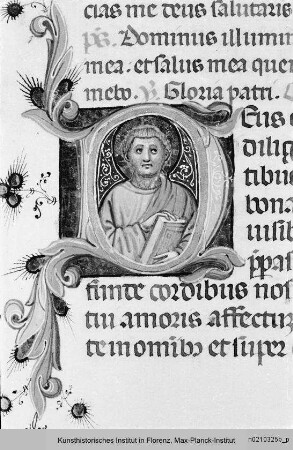 cias me deus salutaris
ps. Dominus illumin
mea. et salus mea quem
mebo. V. Gloria patri.
Deus
dilig
tibus
bona
uisib
ppas
funde cordibus nos
tui amoris affectuz
te in omibz et super
Kunsthistorisches Institut in Florenz, Max-Planck-Institut
n0210325b_p